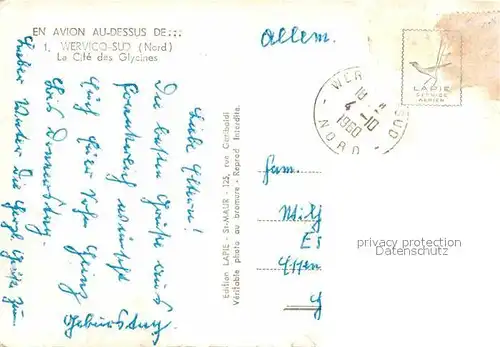 EN AVION AU-DESSUS DE...
1. WERVICQ-SUD (Nord)
La Cité des Glycines
Allem.
LAPIE
SERVICE
AERIEN
WER SUD
18 H
4-10
1960
NORD
Liebe Eltern!
Die besten Grüße aus
Frankreich wünscht
Euch Euer Sohn Heinz
Bis Donnerstag.
Lieber Vater die herzl. Grüße zum
Geburtstag
Edition LAPIE - St-MAUR - 125, rue Garibaldi
Véritable photo au bromure - Reprod Interdite.
Fam.
Es
Essen
privacy protection
watermark